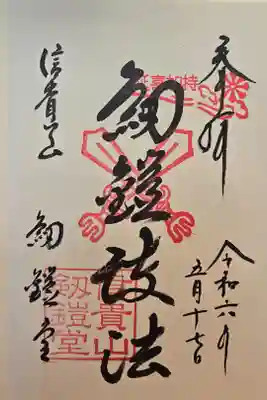 奉拝
令和六年
五月十七日
延喜加持
剱鎧護法
信貴山
剱鎧堂
信貴山
剱鎧堂